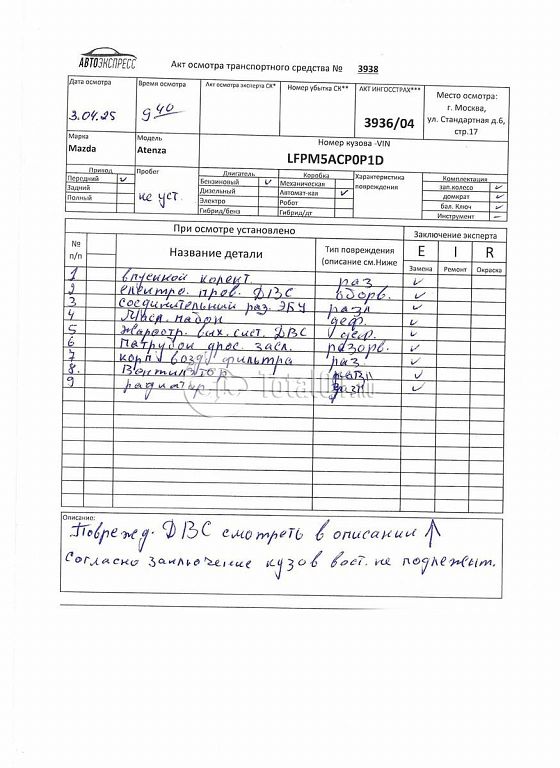 АВТОЭКСПРЕСС
Акт осмотра транспортного средства № 3938
Дата осмотра
3.04.25
Время осмотра
9 40
Акт осмотра эксперта СК*
Номер убытка СК**
АКТ ИНГОССТРАХ***
3936/04
Место осмотра:
г. Москва,
ул. Стандартная д.6,
стр.17
Марка
Mazda
Модель
Atenza
Номер кузова -VIN
LFPM5ACP0P1D
Привод
Передний ✓
Задний
Полный
Пробег
не уст.
Двигатель
Бензиновый ✓
Дизельный
Электро
Гибрид/бенз
Коробка
Механическая
Автомат-кая ✓
Робот
Гибрид/дт
Характеристика
повреждения
Комплектация
зап.колесо ✓
домкрат ✓
бал. Ключ ✓
Инструмент ✓
При осмотре установлено
Заключение эксперта
№
п/п
Название детали
Тип повреждения
(описание см.Ниже
E I R
Замена Ремонт Окраска
1 впускной колект раз ✓
2 електро. пров. ДВС оборв. ✓
3 Соединительный раз. ЭБУ разл ✓
4 деф. ✓
5 Жаростр. вых. сист. ДВС деф. ✓
6 Патрубки дрос. засл. разорв. ✓
7 корп возд. фильтра раз. ✓
8. Вентилятор ✓
9 радиатор ✓
Total01.ru
Описание:
Поврежд. ДВС смотреть в описании ↑
Согласно заключение кузов вост. не подлежит.